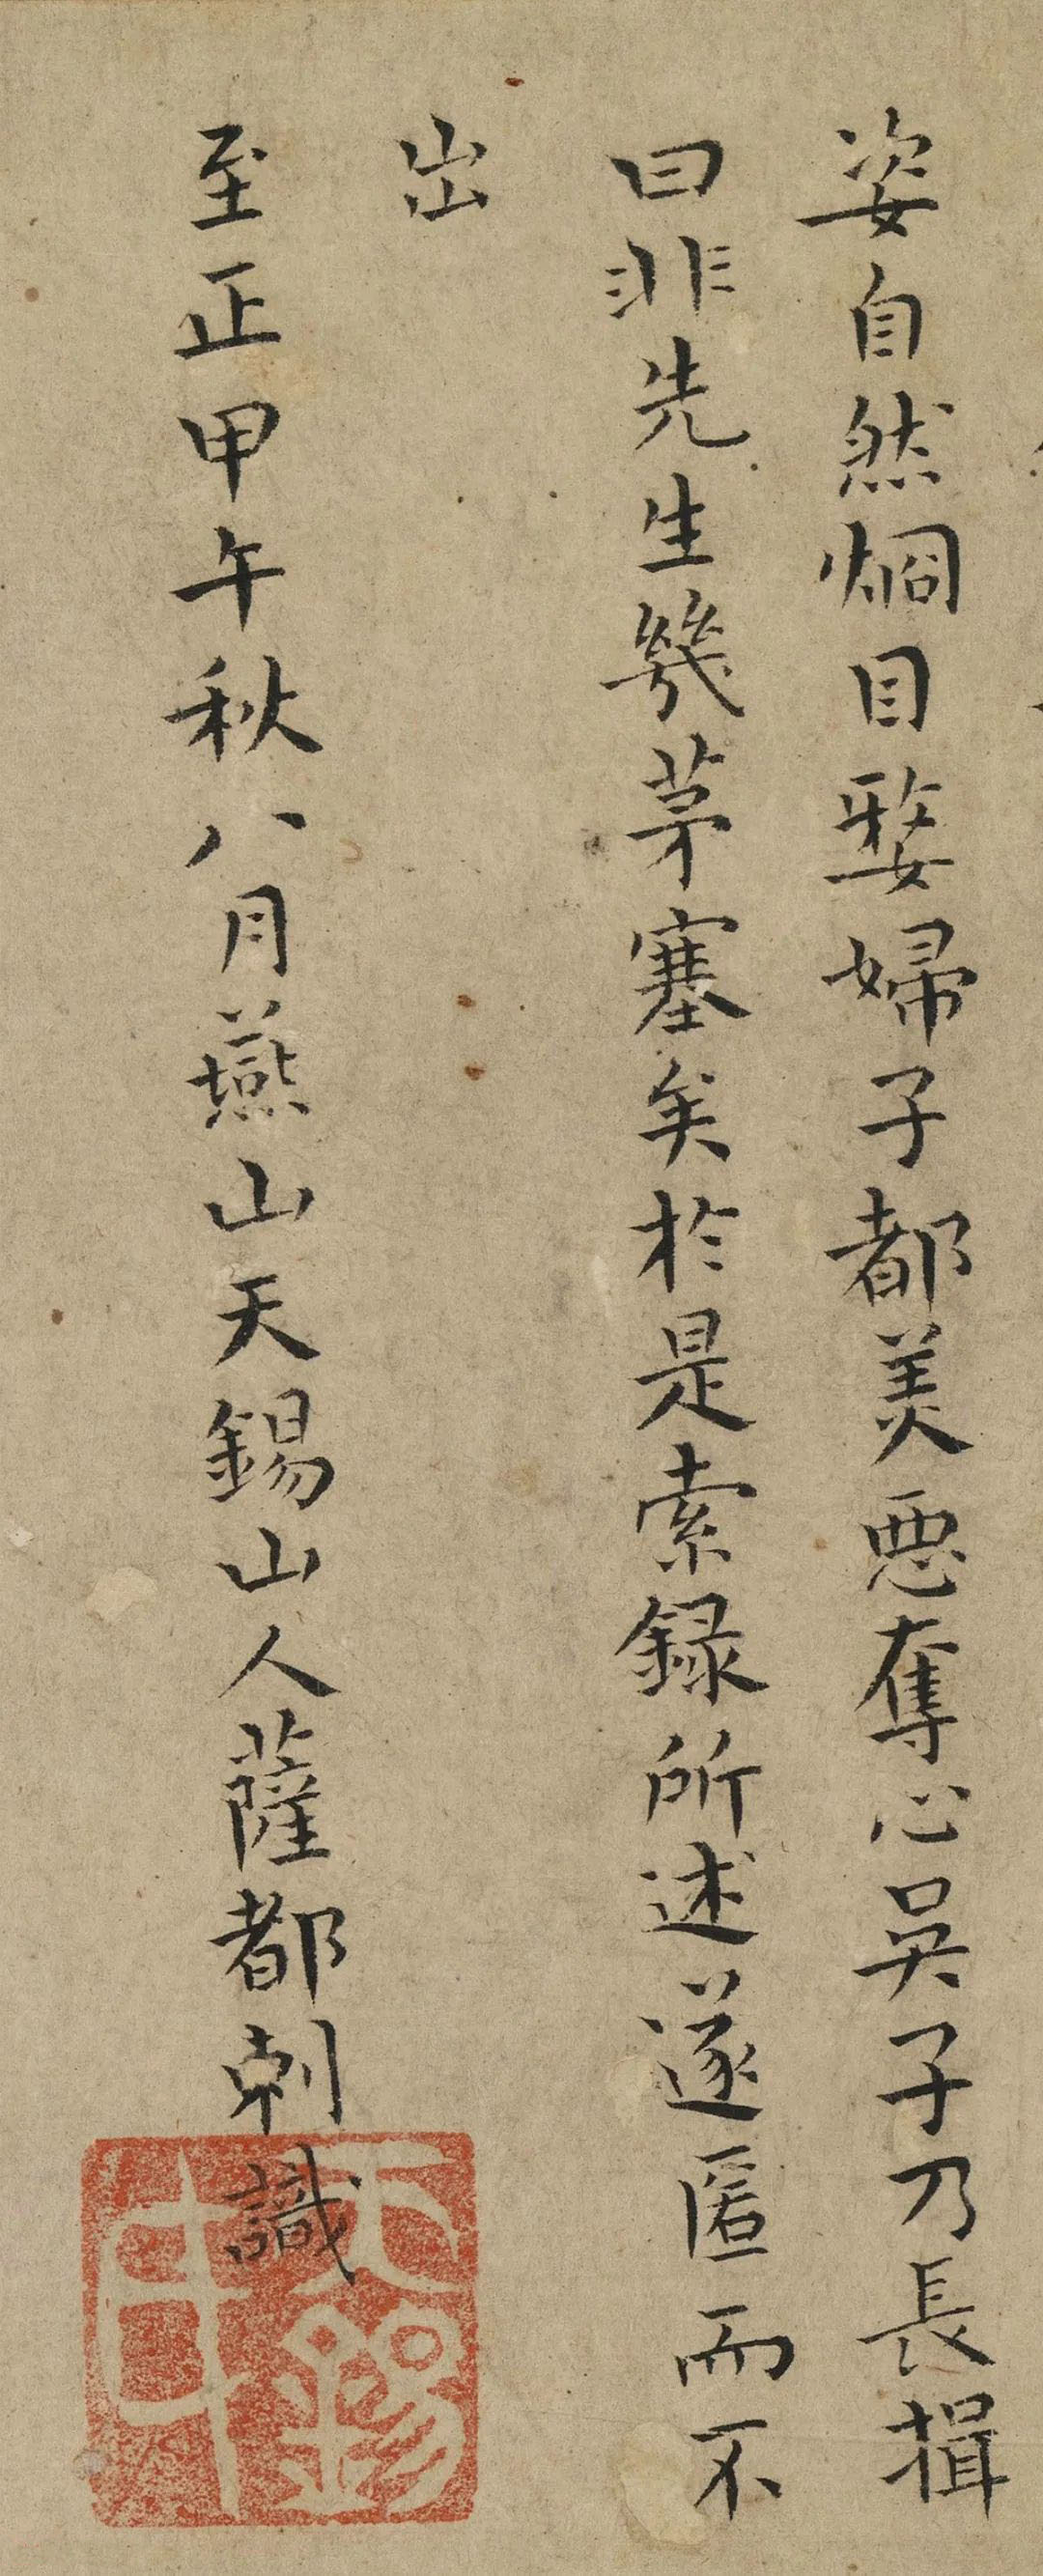 姿自然烱目婺婦子都美惡奪心吳子乃長揖
曰非先生幾茅塞矣於是索録所述遂匿而不
出
至正甲午秋八月燕山天錫山人薩都剌識